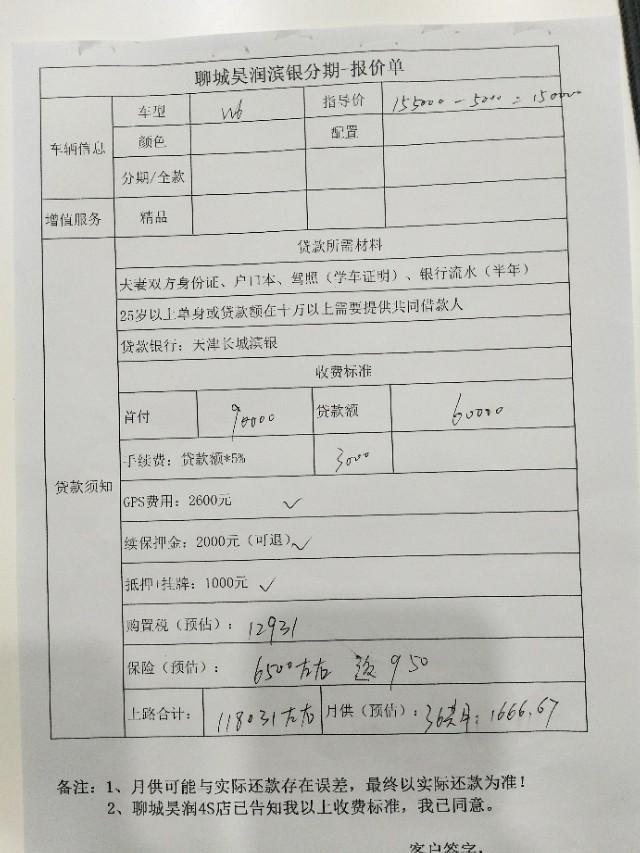 聊城昊润滨银分期-报价单
车辆信息 车型 W6 指导价 155000-5000=150000
颜色 配置
分期/全款
增值服务 精品
贷款须知
贷款所需材料
夫妻双方身份证、户口本、驾照（学车证明）、银行流水（半年）
25岁以上单身或贷款额在十万以上需要提供共同借款人
贷款银行：天津长城滨银
收费标准
首付 90000 贷款额 60000
手续费：贷款额*5% 3000
GPS费用：2600元 ✓
续保押金：2000元（可退）✓
抵押+挂牌：1000元 ✓
购置税（预估）：12931
保险（预估）：6500左右 返950
上路合计：118031左右 月供（预估）：36期 月：1666.67
备注：1、月供可能与实际还款存在误差，最终以实际还款为准！
2、聊城昊润4S店已告知我以上收费标准，我已同意。
客户签字：